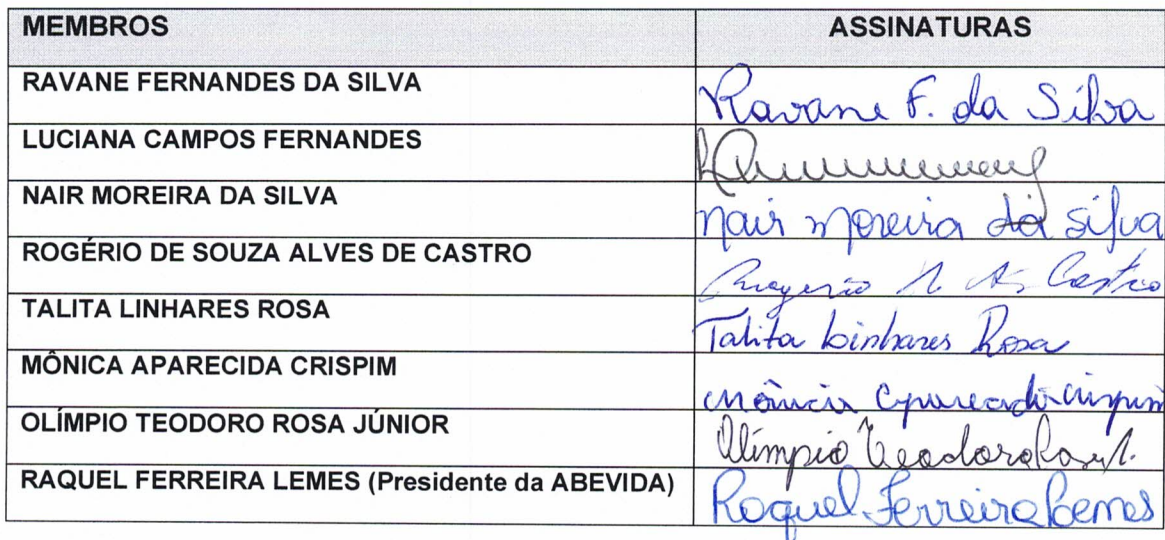 MEMBROS ASSINATURAS
RAVANE FERNANDES DA SILVA Ravane F. da Silva
LUCIANA CAMPOS FERNANDES
NAIR MOREIRA DA SILVA Nair Moreira da Silva
ROGÉRIO DE SOUZA ALVES DE CASTRO Rogerio A. Castro
TALITA LINHARES ROSA Talita Linhares Rosa
MÔNICA APARECIDA CRISPIM Mônica Aparecida Crispim
OLÍMPIO TEODORO ROSA JÚNIOR Olímpio Teodoro Rosa Jr.
RAQUEL FERREIRA LEMES (Presidente da ABEVIDA) Raquel Ferreira Lemes